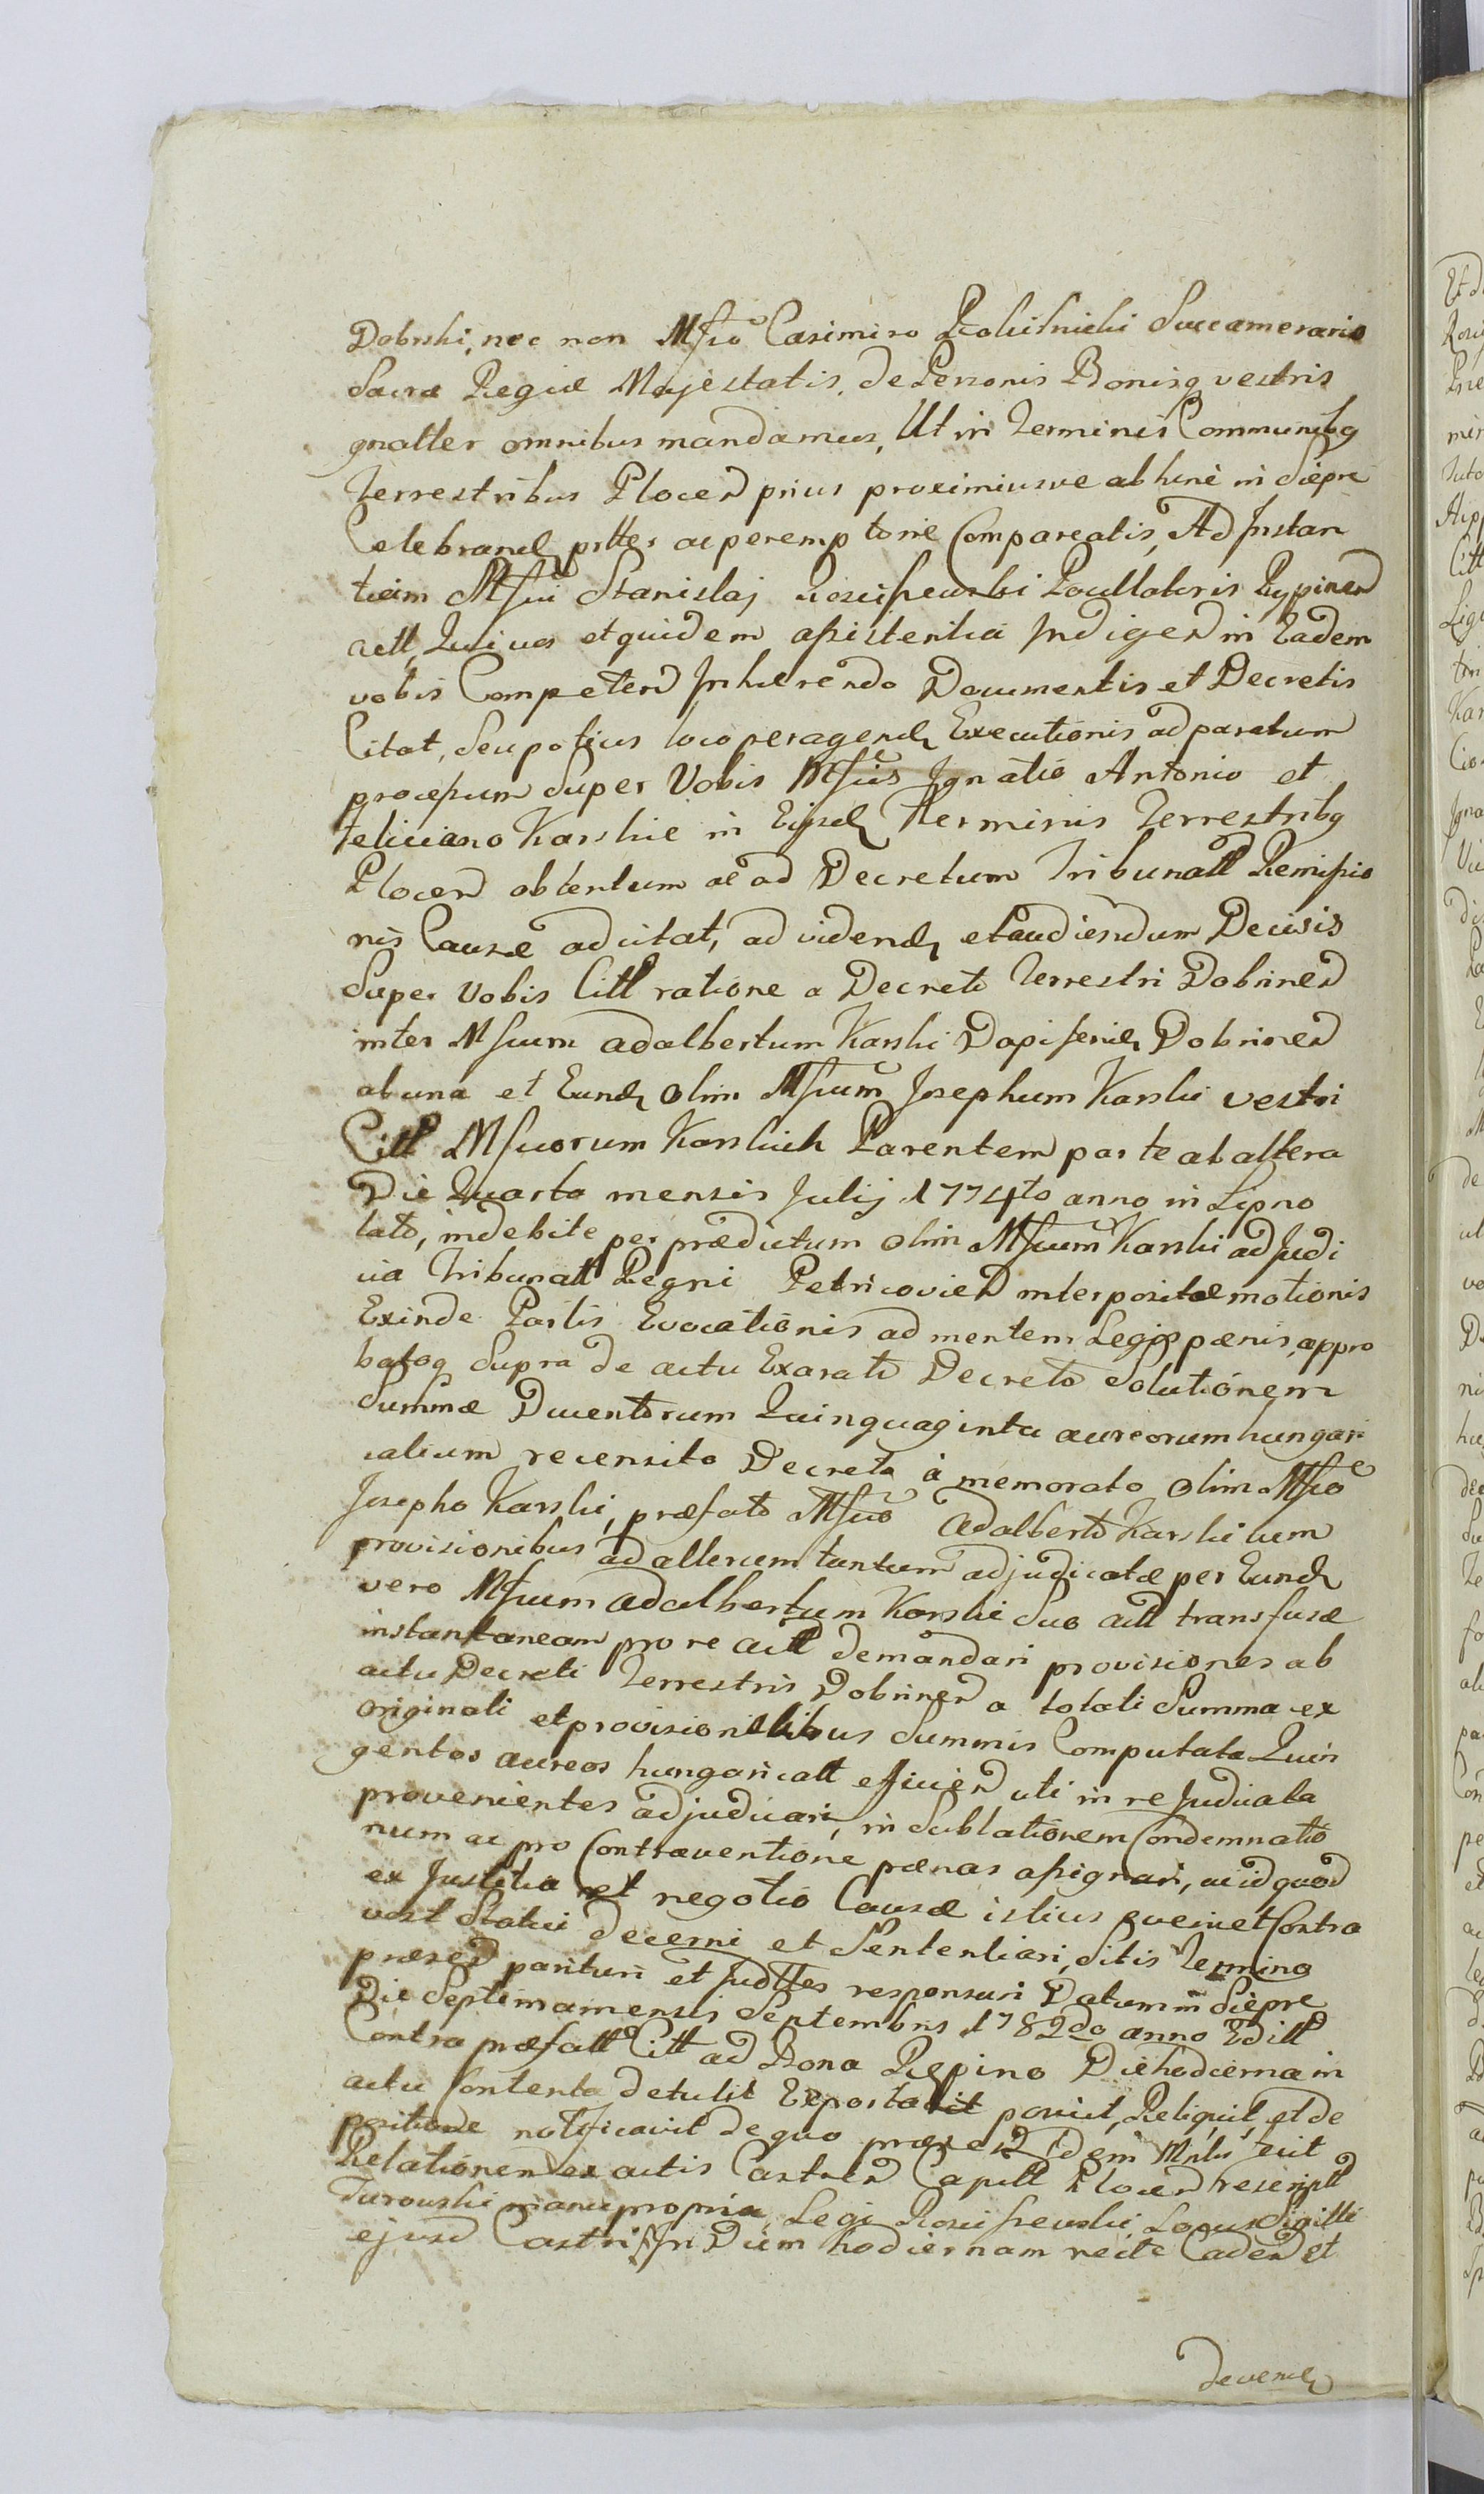 Dobrski, nec non Mfco Casimiro Rokitnicki Succamerario
Sacræ Regiæ Majestatis, de Personis Bonisq vestris
gnatter omnibus mandamus, Ut in Terminis Communibq
Terrestribus Plocen prius proximiusve ab hinc in Siepre
Celebrand ptter ac peremptorie Compareatis, Ad Instan
tiam Mfci Stanislaj Rosciszewski Pocillatoris Rypinen
actt, Qui vos et quidem assistentia Indigen in Eadem
vobis Competen Inhærendo Documentis et Decretis
Citat, Seu potius loco peragend Executionis ad paratum
processum Super Vobis Mfcis Ignatio Antonio et
Feliciano Karskie in Eijsd Terminis Terrestribq
Plocen obtentum ac ad Decretum Tribunatt Remissio
nis Causæ ad citat, ad vidend et audiendum Decisis
Super Vobis Citt ratione a Decreto Terrestri Dobrinen
inter Mfcum Adalbertum Karski Dapiferid Dobrinen
ab una et Eund olim Mfcum Josephum Karski vestri
Citt Mfcorum Karskich Parentem parte ab altera
Die Quarta mensis Julij 1774to anno in Lipno
lato, indebite per prædictum olim Mfcum Karski ad Judi
cia Tribunatt Regni Petricovien interpositæ motionis
Exinde Partis Evocationis ad mentem Legis pænis, appro
batoq Supra de actu Exarato Decreto Solutionem
Summæ Ducentorum Quinquaginta aureorum hungari
calium recensito Decreto à memorato olim Mfco
Josepho Karski, præfato Mfco Adalberto Karski cum
provisionibus ad alterum tantum adjudicatæ per Eund
vero Mfcum Adalbertum Karski Suo actt transfusæ
instantaneam pro re actt demandari provisiones ab
actu Decreti Terrestris Dobrinen a totali Summa ex
originali et provisionalibus Summis Computata Quin
gentos aureos hungaricatt efficien uti in re Judicata
provenientes adjudicari, in Sublationem Condemnatio
num ac pro Contraventione pænas assignari, ac id quod
ex Justitia et negotio Causæ istius evenit Contra
vost Statui decerni et Sententiari, Sitis Termino
præsen parituri et Judtter responsuri Datum in Siepre
Die Septima mensis Septembris 1782do anno Editt
Contra præfatt Citt ad Bona Rypino Die hodierna in
actu Contenta detulit Exportavit posuit, Reliquit, et de
positione notificavit de quo præsen Idem Mnlis fecit
Relationem ex actis Castren Capitt Plocen rescriptt
Turowski manu propria, Legi Rosciszewski, Locus Sigilli
ejusd Castri In Diem hodiernam recte Caden et
devenid